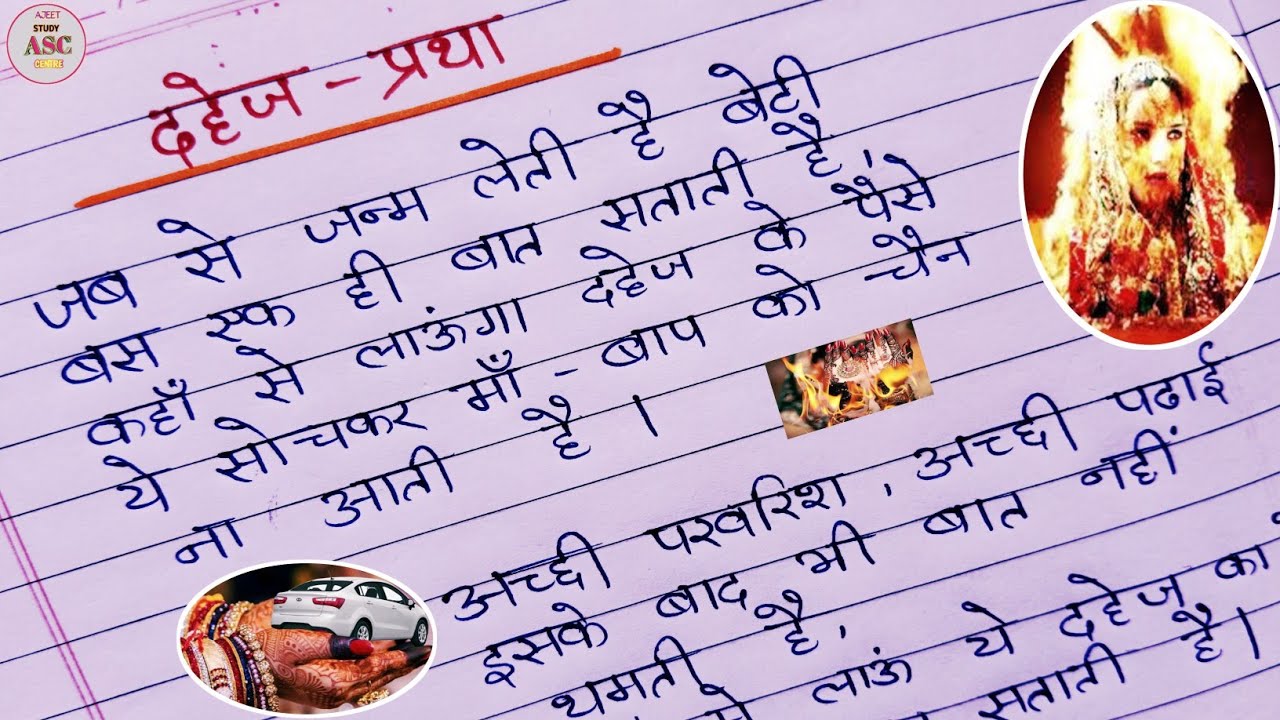 AJEET
STUDY
ASC
CENTRE
दहेज - प्रथा
जब से जन्म लेती है बेटी
बस एक ही बात सताती है,
कहाँ से लाऊंगा दहेज के पैसे
ये सोचकर माँ - बाप को चैन
ना आती है ।
अच्छी परवरिश, अच्छी पढाई
इसके बाद भी बात नहीं
थमती है,
से लाऊं ये दहेज का
सताती है ।